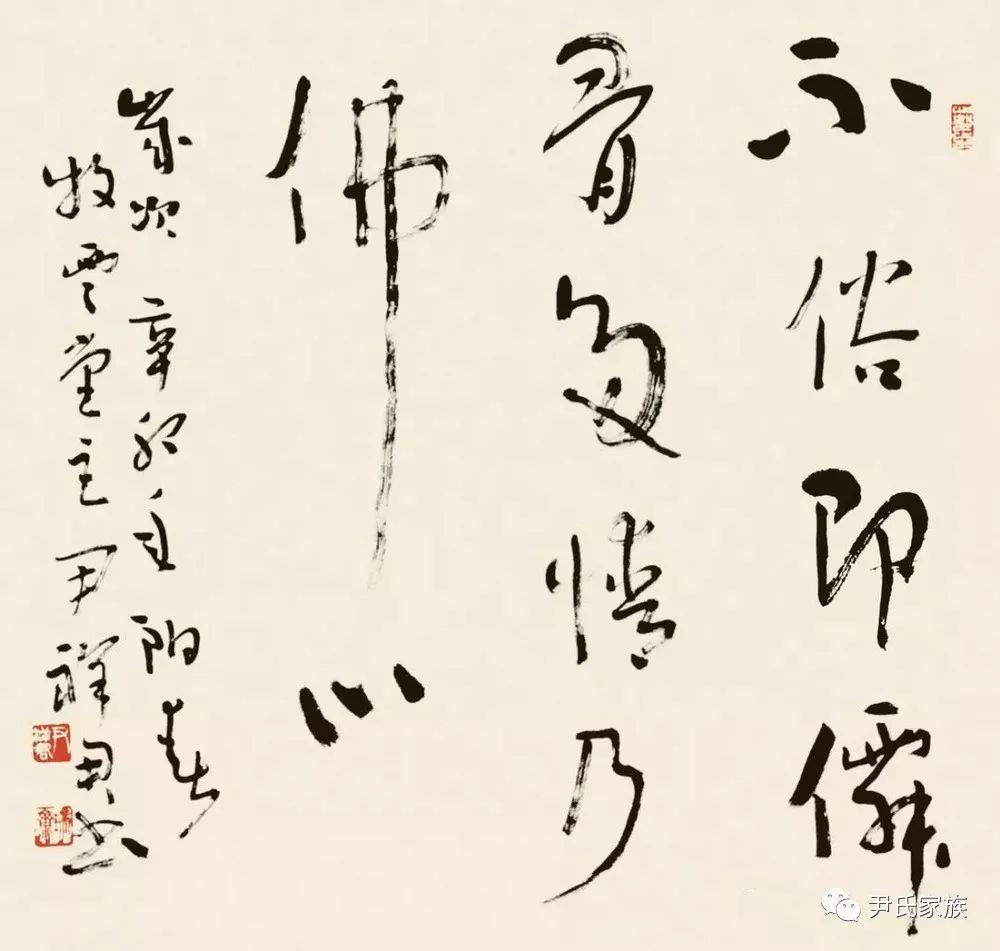 不俗即僊
骨多情乃
佛心
歲次辛卯年阳春
牧雲堂主尹祥君书
尹氏家族